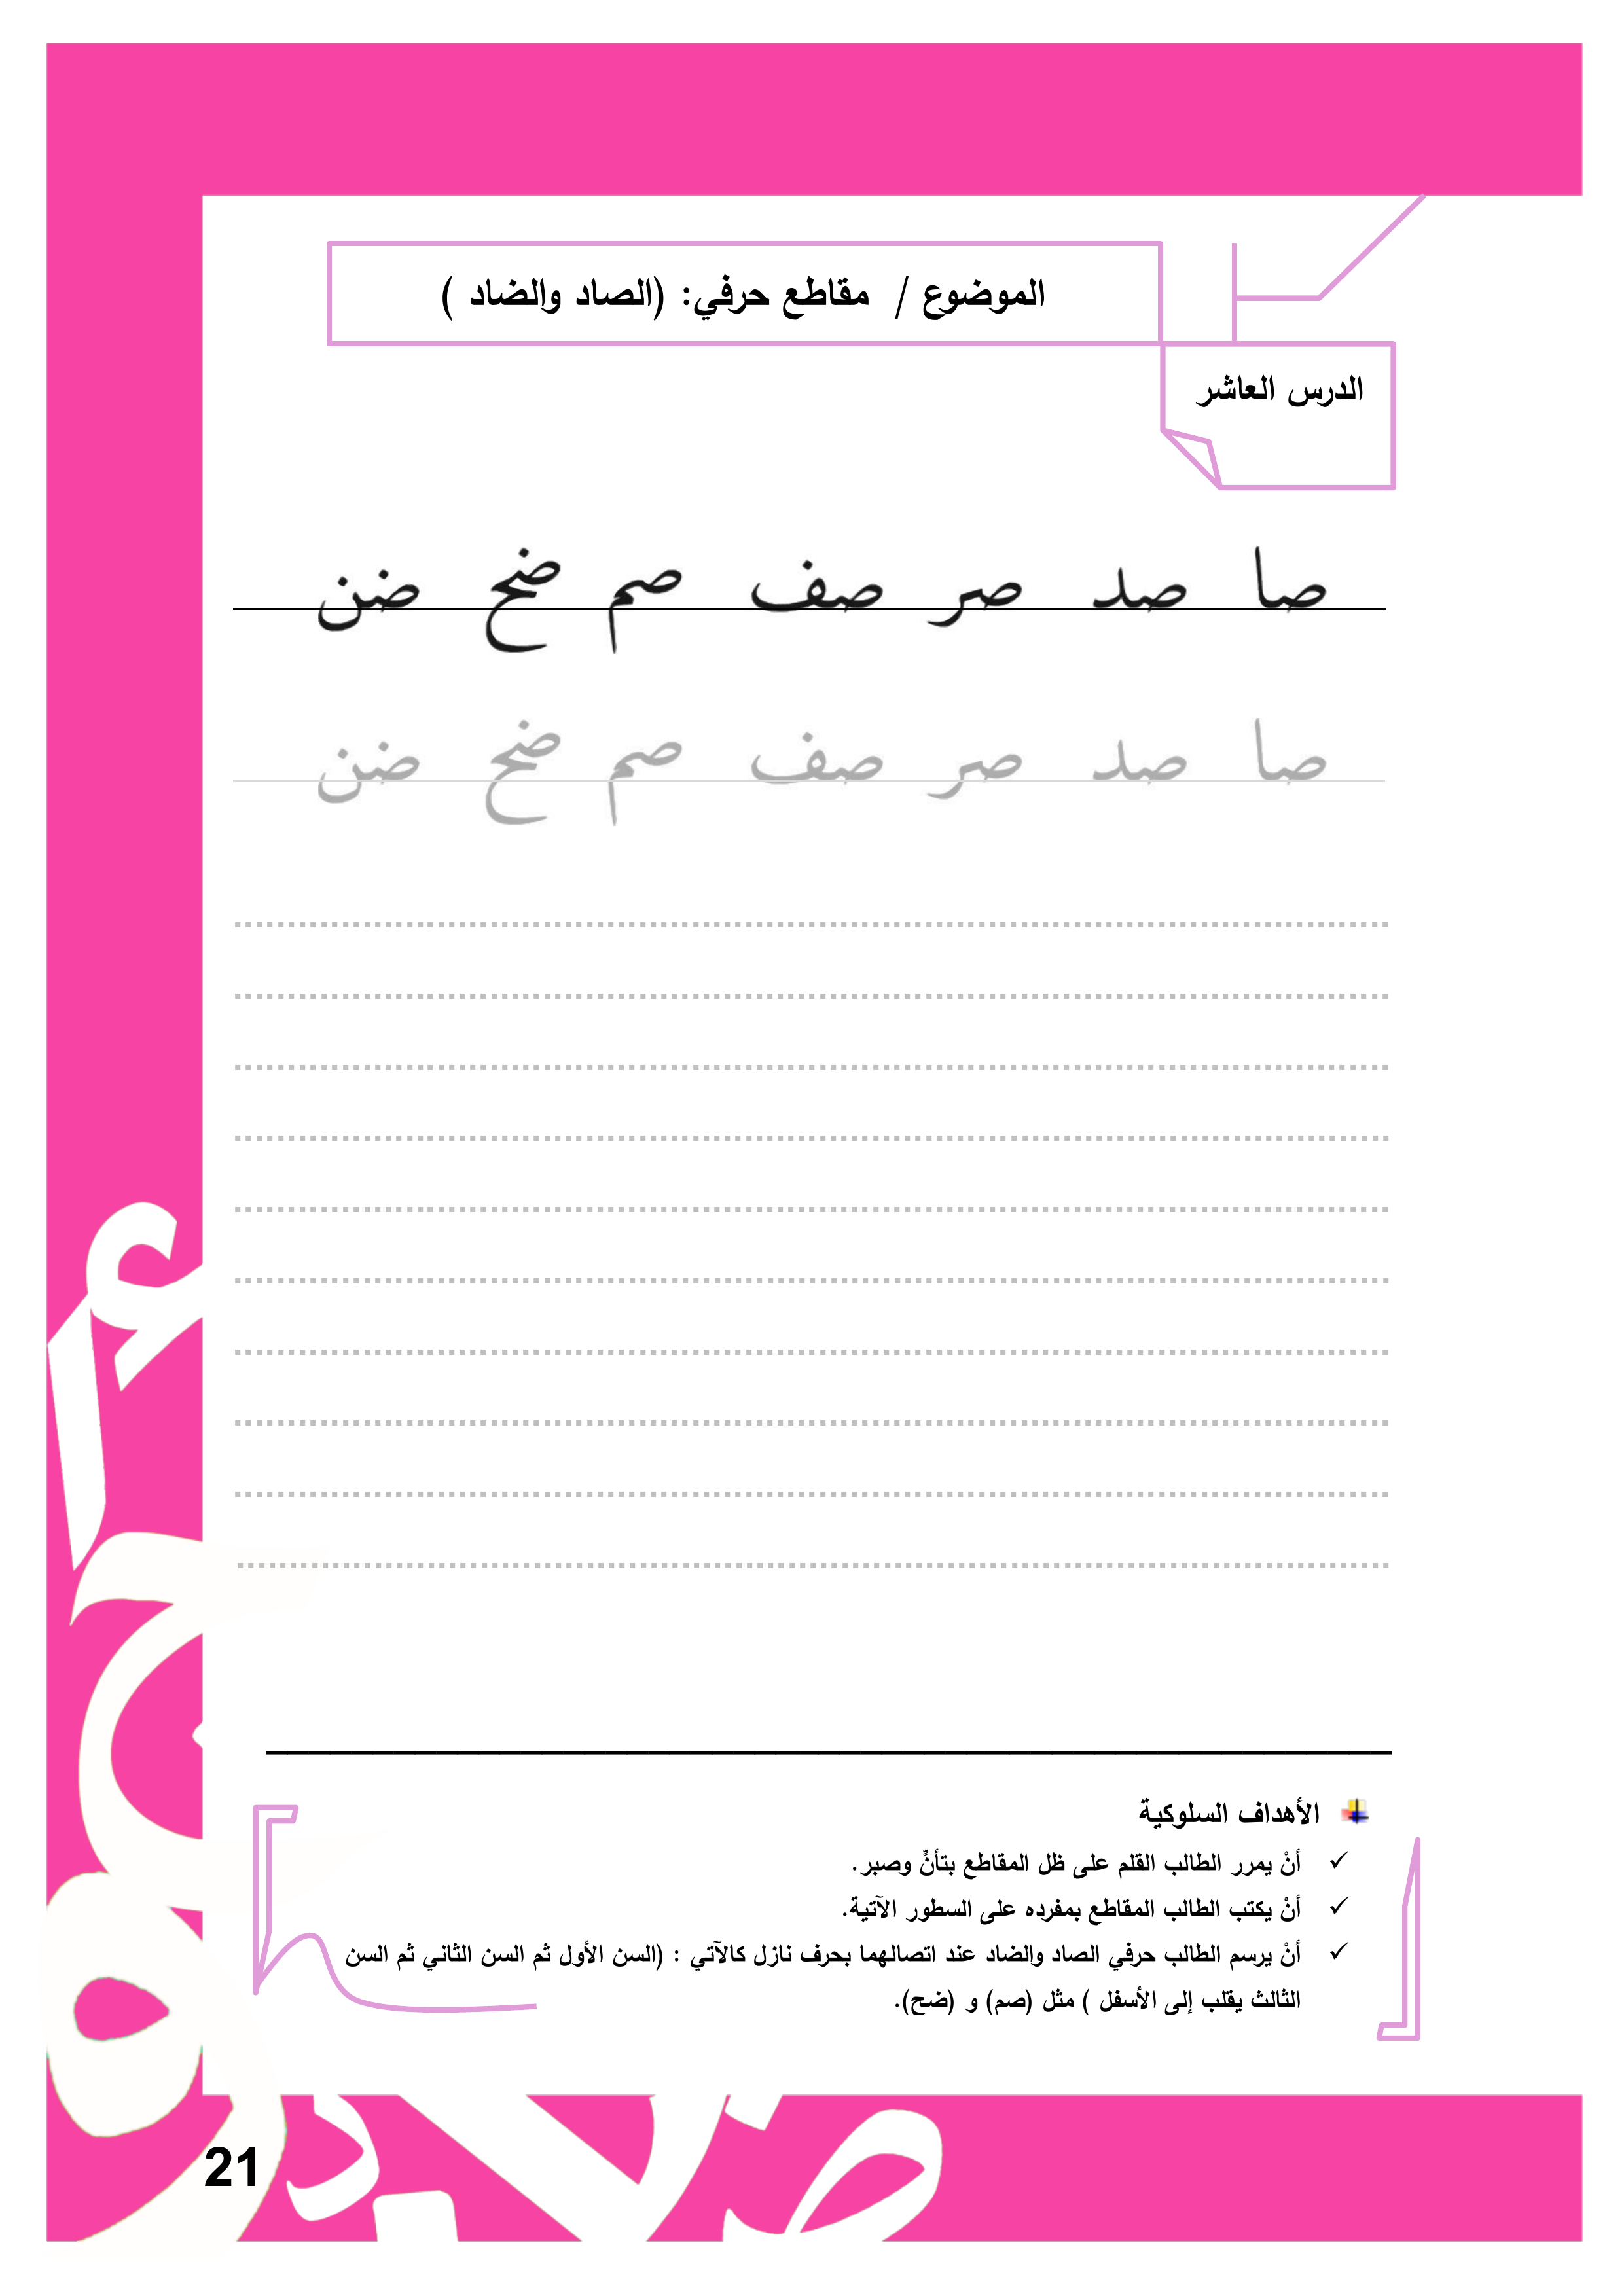 الموضوع / مقاطع حرفي: (الصاد والضاد )
الدرس العاشر
صا صد صر صف صم ضح ضن
صا صد صر صف صم ضح ضن
الأهداف السلوكية
✓ أنْ يمرر الطالب القلم على ظل المقاطع بتأنٍّ وصبر.
✓ أنْ يكتب الطالب المقاطع بمفرده على السطور الآتية.
✓ أنْ يرسم الطالب حرفي الصاد والضاد عند اتصالهما بحرف نازل كالآتي : (السن الأول ثم السن الثاني ثم السن
الثالث يقلب إلى الأسفل ) مثل (صم) و (ضح).
21